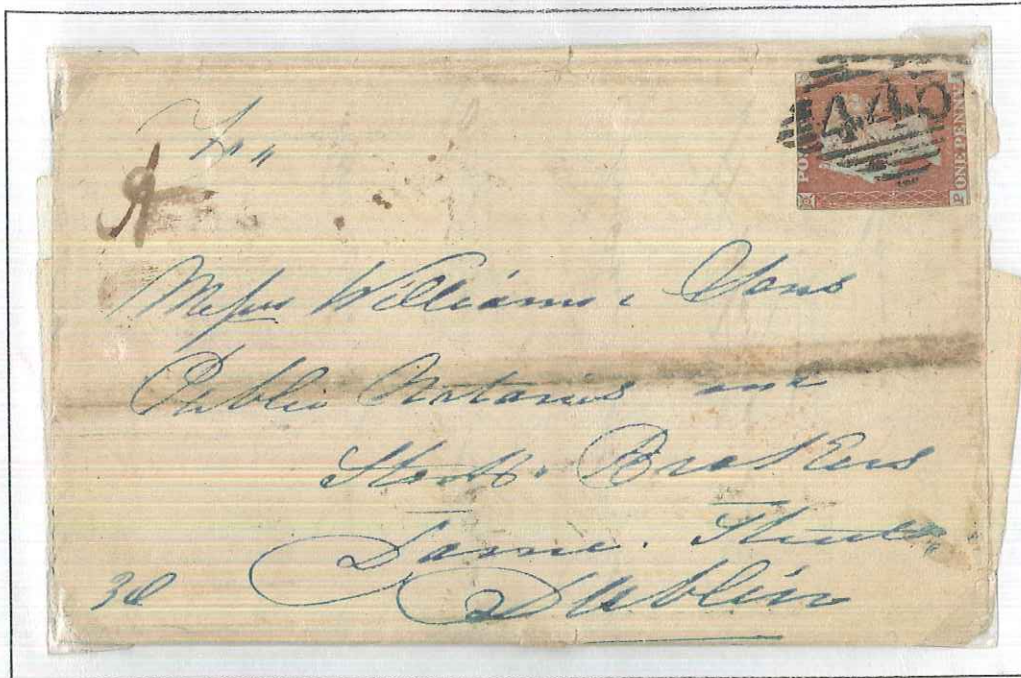 445
POS
ONE PENNY
P
Messrs Williams & Sons
Public Notaries and
Stock Brokers
Dame Street
Dublin